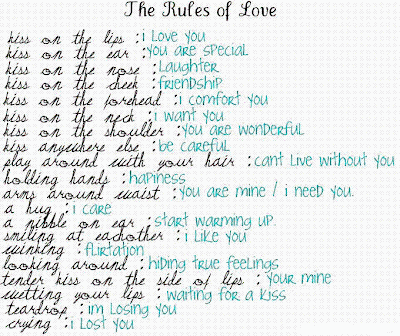 The Rules of Love
kiss on the lips :i Love you
kiss on the ear :you are special
kiss on the nose :Laughter
kiss on the cheek :friendship
kiss on the forehead :i comfort you
kiss on the neck :i want you
kiss on the shoulder :you are wonderful
kiss anywhere else :be careful
play around with your hair :cant Live without you
holding hands :hapiness
arms around waist :you are mine / i need you.
a hug :i care
a nibble on ear :start warming up.
smiling at eachother :i Like you
winking :flirtation
looking around :hiding true feelings
tender kiss on the side of lips :your mine
wetting your lips :waiting for a kiss
teardrop :im Losing you
crying :i Lost you